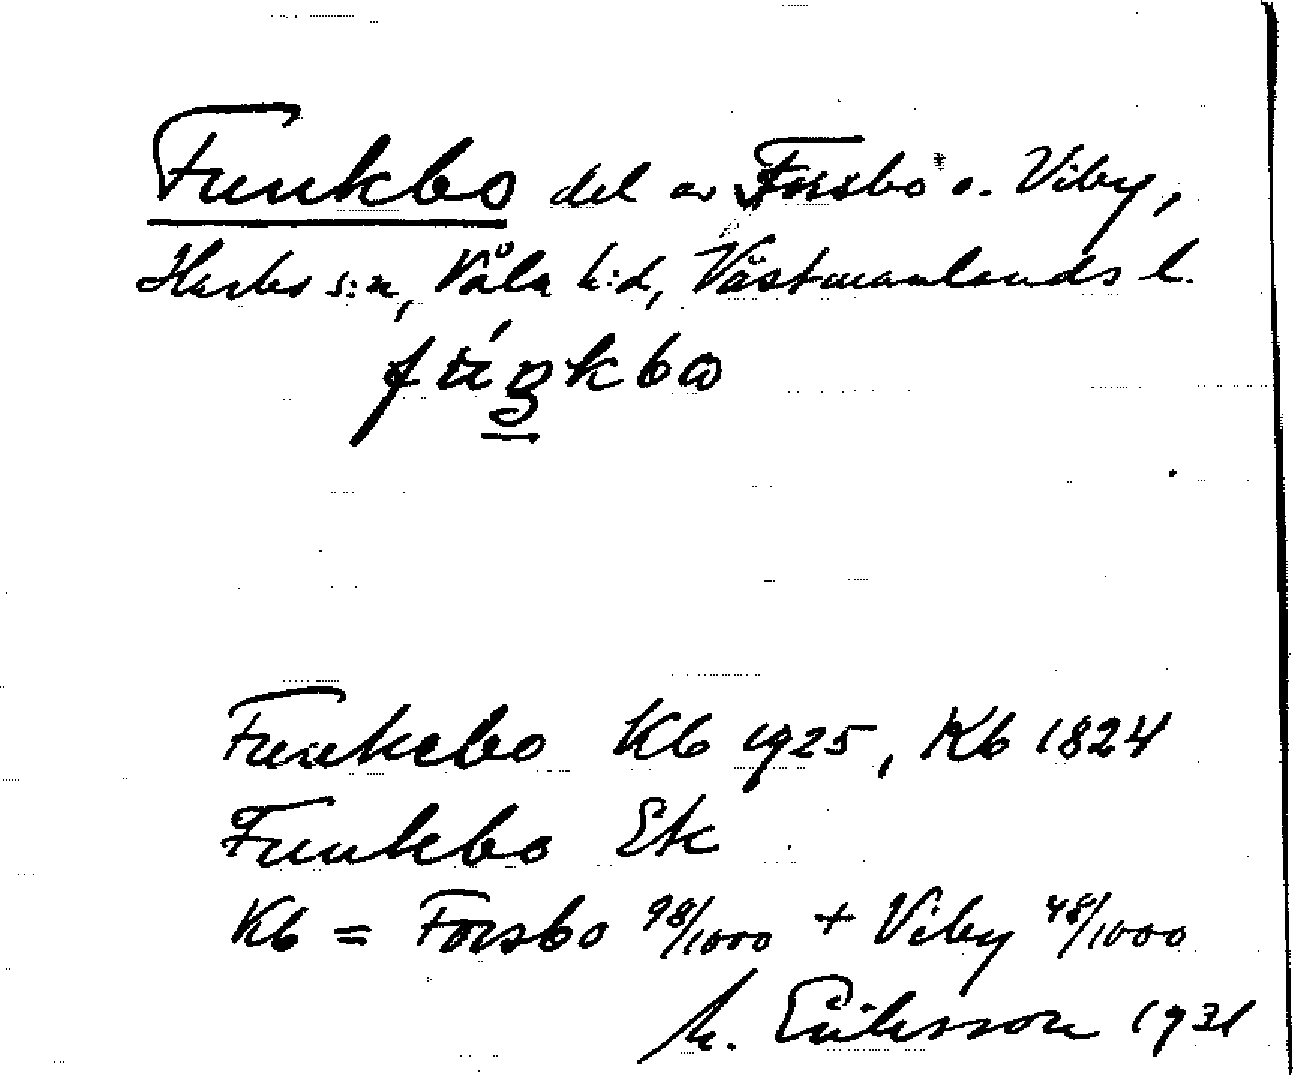 Funkbo del av Forsbo o. Viby,
Harbo s:n, Våla h:d, Västmanlands l.
Funkebo Kb 1925, Kb 1824
Funkbo Ek
Kb = Forsbo 98/1000 + Viby 48/1000
M. Eriksson 1931